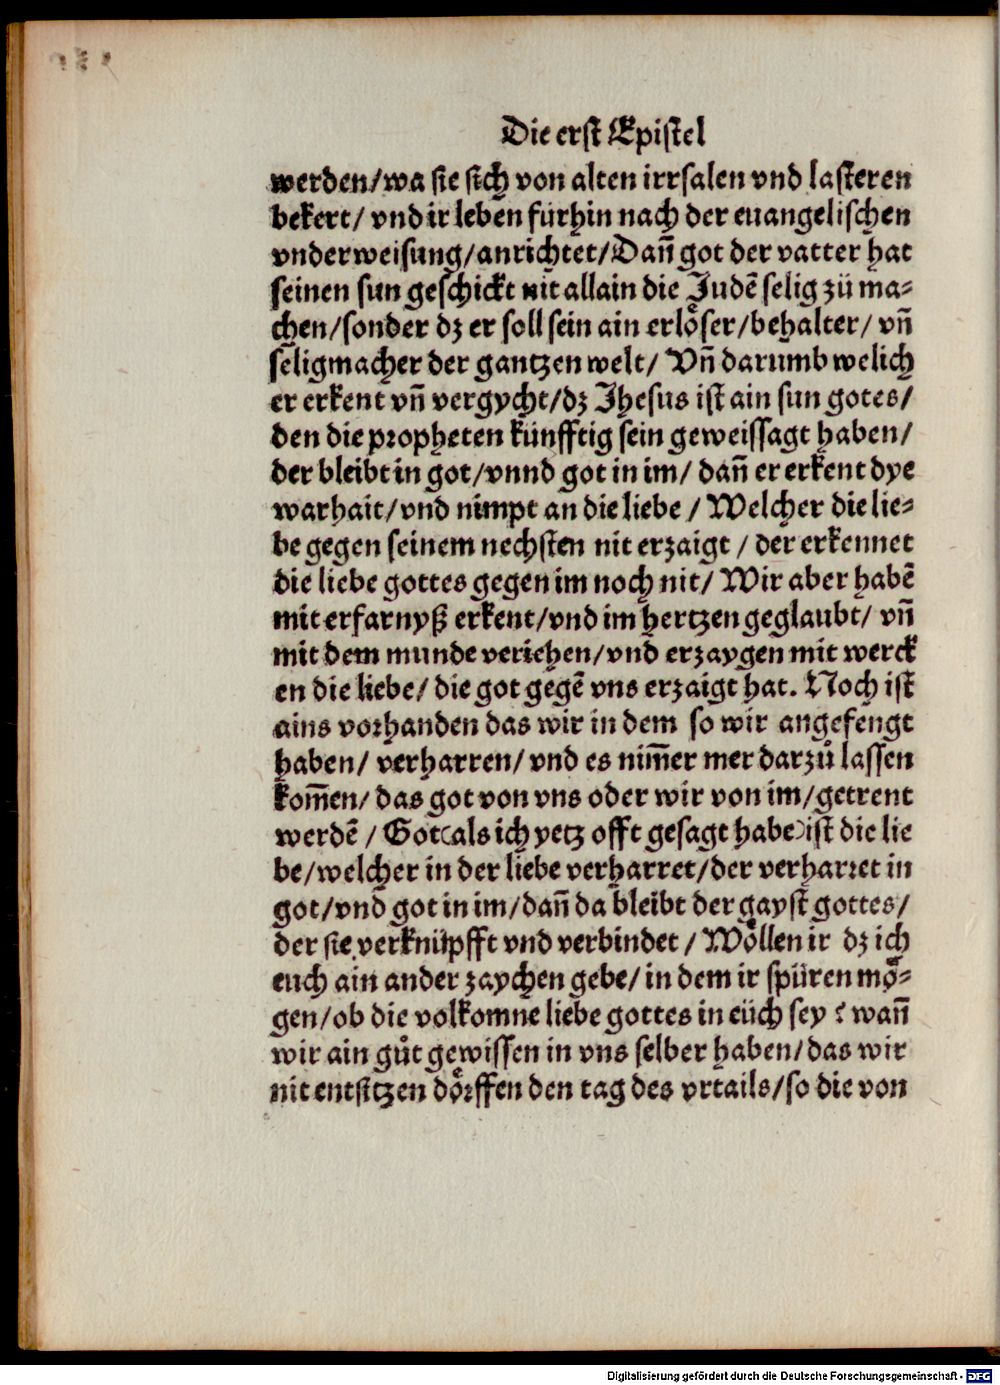 Die erst Epistel
werden/wa sie sich von alten irrsalen vnd lasteren
bekert/ vnd ir leben fürhin nach der euangelischen
vnderweisung/anrichtet/Dañ got der vatter hat
seinen sun geschickt nit allain die Judē selig zů ma⸗
chen/sonder dz er soll sein ain erlöser/behalter/ vñ
seligmacher der gantzen welt/ Vñ darumb welich
er erkent vñ vergycht/dz Jhesus ist ain sun gotes/
den die propheten künfftig sein geweissagt haben/
der bleibt in got/vnnd got in im/ dañ er erkent dye
warhait/vnd nimpt an die liebe / Welcher die lie⸗
be gegen seinem nechsten nit erzaigt / der erkennet
die liebe gottes gegen im noch nit/ Wir aber habē
mit erfarnyß erkent/vnd im hertzen geglaubt/ vñ
mit dem munde veriehen/vnd erzaygen mit werck
en die liebe/ die got gegē vns erzaigt hat. Noch ist
ains vorhanden das wir in dem so wir angefengt
haben/ verharren/ vnd es nim̄er mer darzů lassen
kom̄en/ das got von vns oder wir von im/getrent
werdē / Got(als ich yetz offt gesagt habe)ist die lie
be/welcher in der liebe verharret/der verharret in
got/vnd got in im/dañ da bleibt der gayst gottes/
der sie verknüpfft vnd verbindet / Wöllen ir dz ich
euch ain ander zaychen gebe/ in dem ir spüren mö⸗
gen/ob die volkomne liebe gottes in eüch sey? wañ
wir ain gůt gewissen in vns selber haben/das wir
nit entsitzen dörffen den tag des vrtails/so die von
Digitalisierung gefördert durch die Deutsche Forschungsgemeinschaft - DFG